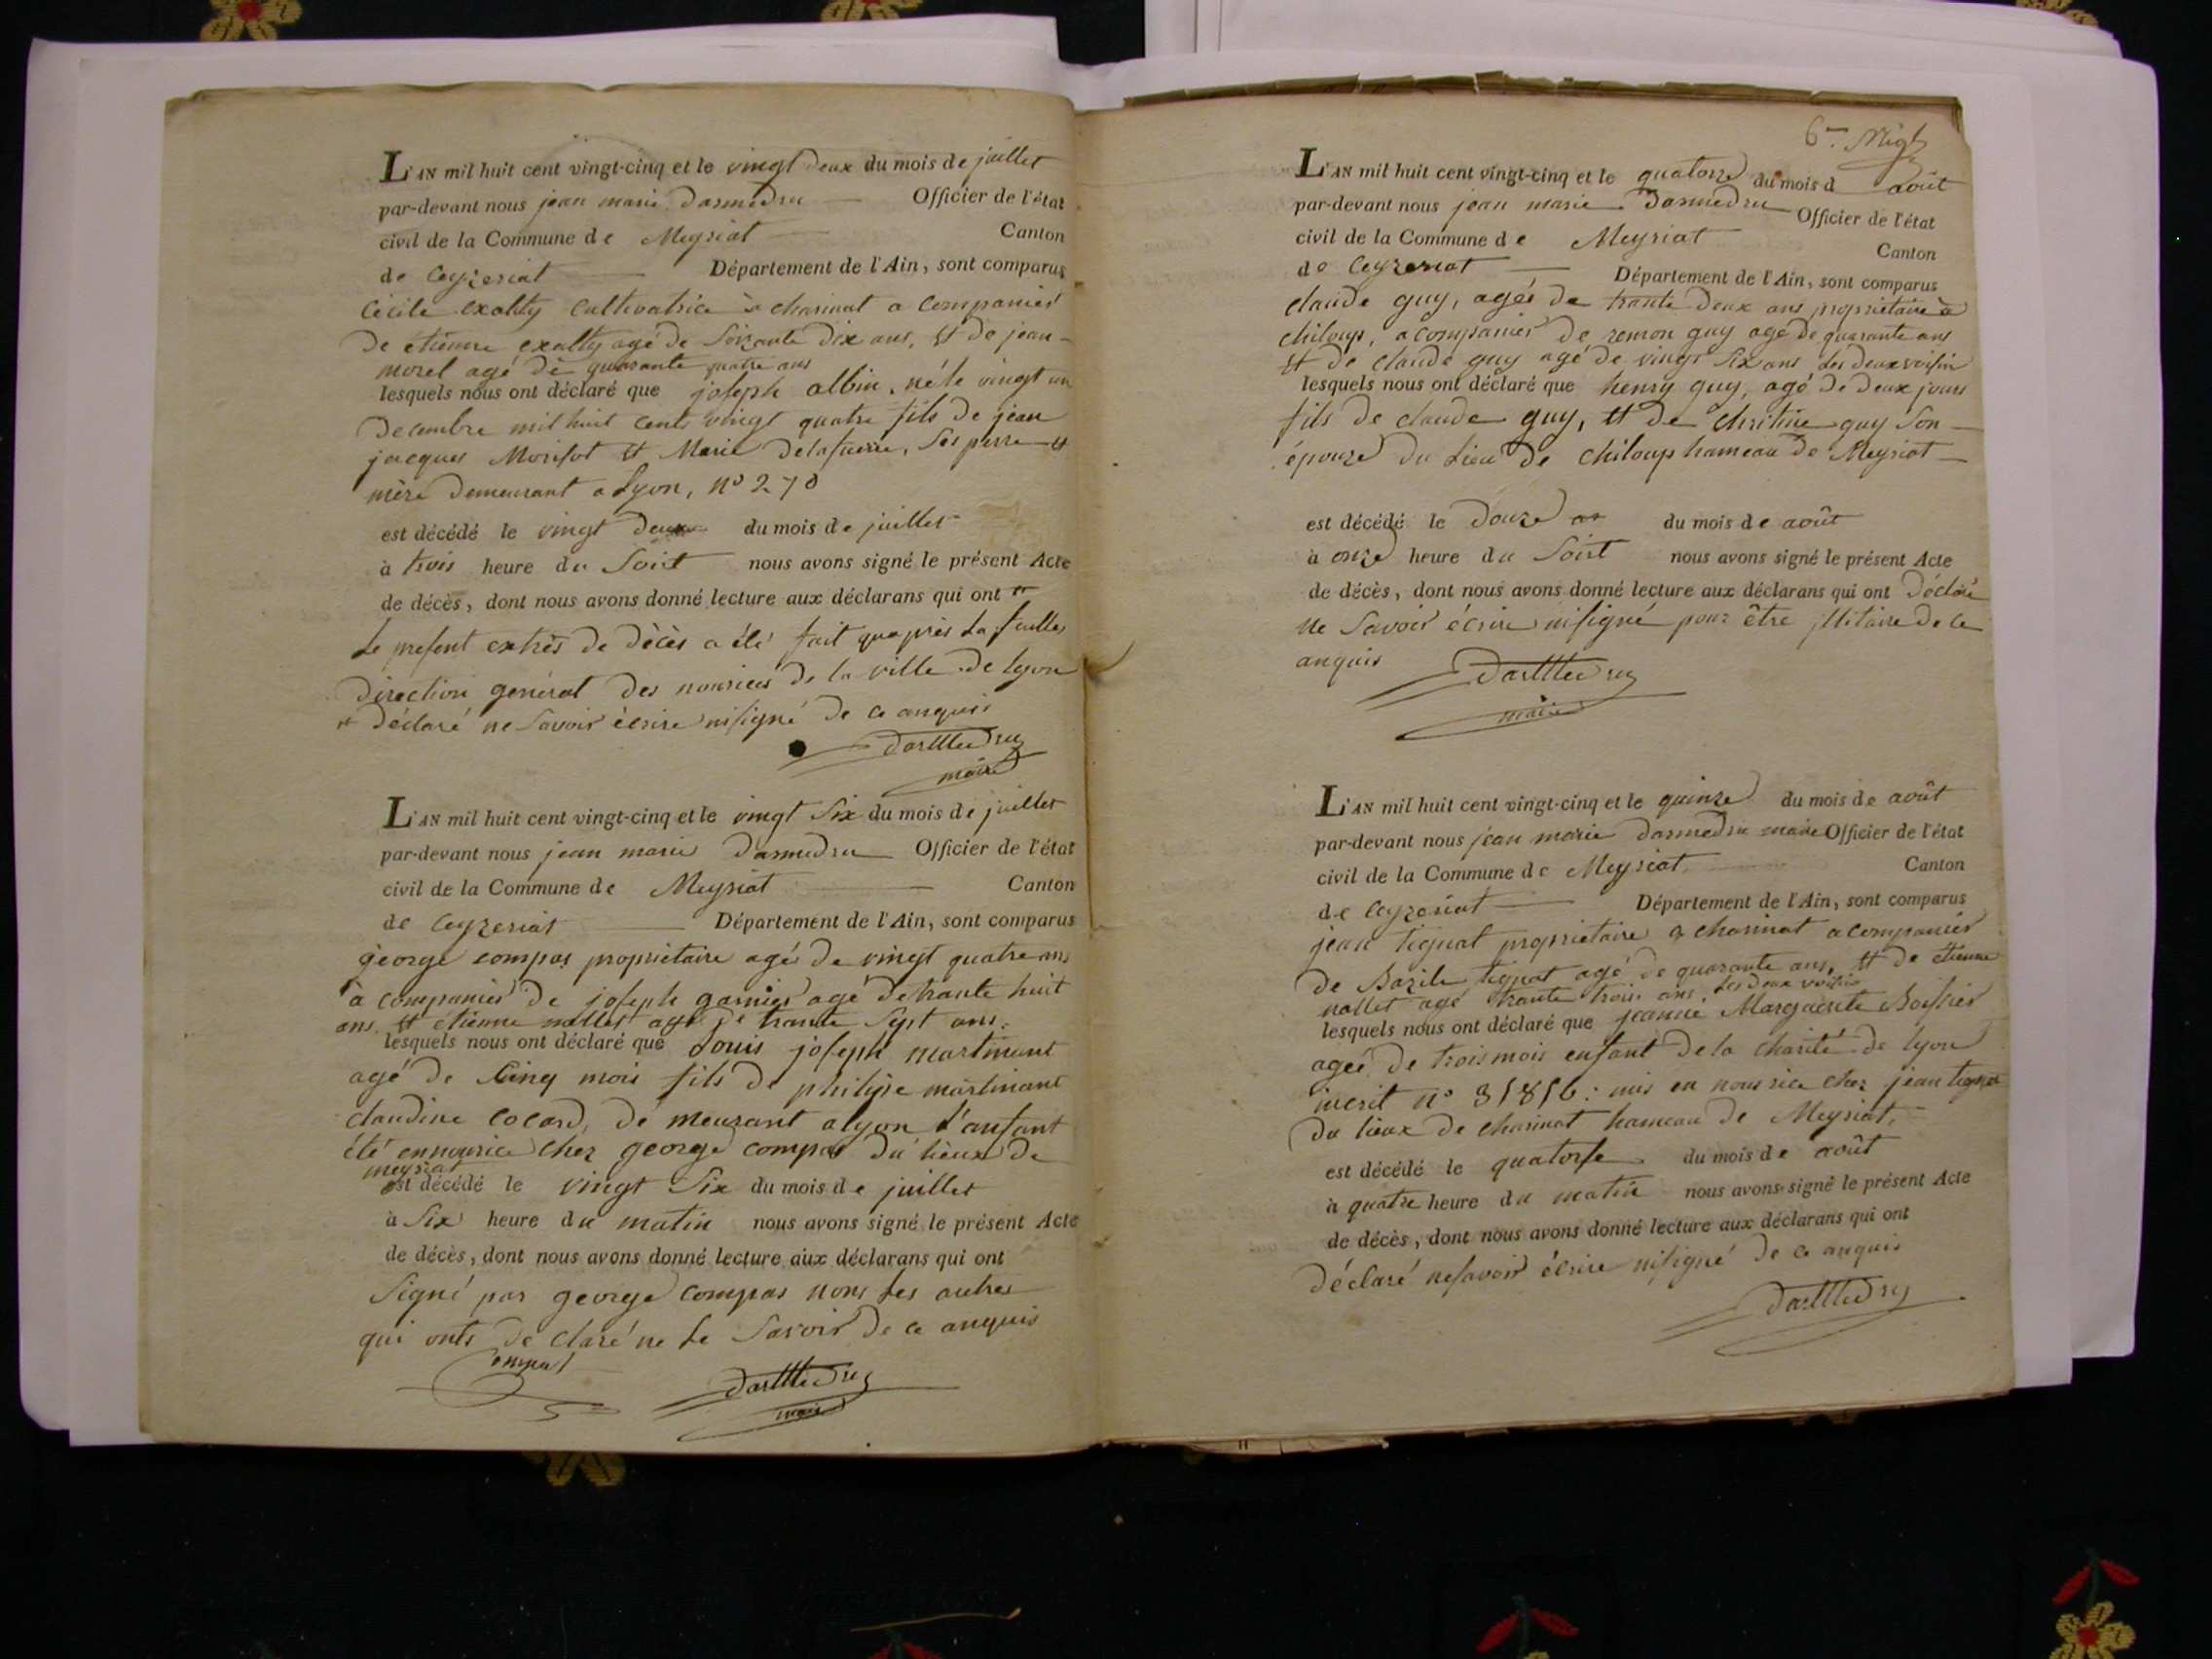 L'AN mil huit cent vingt-cinq et le vingt deux du mois de juillet
par-devant nous jean marie darmedru Officier de l'état
civil de la Commune de Meyriat Canton
de Ceyzeriat Département de l'Ain, sont comparus
Cécile exalty Cultivatrice à charinat a companier
de étienne exalty agé de Soixante dix ans, et de jean
morel agé de quarante quatre ans
lesquels nous ont déclaré que joseph albin, né le vingt un
decembre mil huit cents vingt quatre fils de jean
jacques Morisot et Marie, Ses perre et
mère demeurant a Lyon, n° 270
est décédé le vingt deux du mois de juillet
à trois heure du Soirt nous avons signé le présent Acte
de décès, dont nous avons donné lecture aux déclarans qui ont
Le present extrès de décès a été fait quaprès la feulles
direction general des nourices de la ville de lyon
déclaré ne Savoir écrire nisigné de ce anquis
darmedru
maire
L'AN mil huit cent vingt-cinq et le vingt Six du mois de juillet
par-devant nous jean marie darmedru Officier de l'état
civil de la Commune de Meyriat Canton
de Ceyzeriat Département de l'Ain, sont comparus
george compas propriétaire agé de vingt quatre ans
à companier de joseph garnier agé de trante huit
ans et étienne nallet agé de trante Sept ans.
lesquels nous ont déclaré que Louis joseph martinant
agé de Cinq mois fils de philipe martinant
claudine cocard, de meurant a lyon L'anfant
été ennourice chez george compas du lieux de
meyriat
est décédé le vingt Six du mois de juillet
à Six heure du matin nous avons signé le présent Acte
de décès, dont nous avons donné lecture aux déclarans qui ont
Signé par george compas nons Les autres
qui onts de claré ne Le Savoir de ce anquis
Compas
darmedru
maire
6me
L'AN mil huit cent vingt-cinq et le quatorze du mois d août
par-devant nous jean marie darmedru Officier de l'état
civil de la Commune de Meyriat Canton
de Ceyzeriat Département de l'Ain, sont comparus
claude guy, agée de trante deux ans propriétaire à
chiloup, acompanier de remon guy agé de quarante ans
et de claude guy agé de vingt Six ans Les deux voisin
lesquels nous ont déclaré que henry guy, agé de deux jours
fils de claude guy, et de Christine guy Son
épouze du Lieu de chiloup hameau de Meyriat
est décédé le douze du mois de août
à onze heure du Soirt nous avons signé le présent Acte
de décès, dont nous avons donné lecture aux déclarans qui ont déclaré
ne Savoir écrire nisigné pour être de ce
anquis
darmedru
maire
L'AN mil huit cent vingt-cinq et le quinze du mois de août
par-devant nous jean marie darmedru maire Officier de l'état
civil de la Commune de Meyriat Canton
de Ceyzeriat Département de l'Ain, sont comparus
jean tignat propriétaire a charinat acompanier
de Bazile tignat agé de quarante ans, et de étienne
nallet agé trante trois ans, Les deux voisin
lesquels nous ont déclaré que jeanne Marguerite Boissier
ageé de trois mois enfant de la charité de lyon
inscrit n° 31816: mis en nourrice chez jean tignat
du lieux de charinat hameau de Meyriat,
est décédé le quatorse du mois de août
à quatre heure du matin nous avons signé le présent Acte
de décès, dont nous avons donné lecture aux déclarans qui ont
déclaré nesavoir écrire nisigné de ce anquis
darmedru